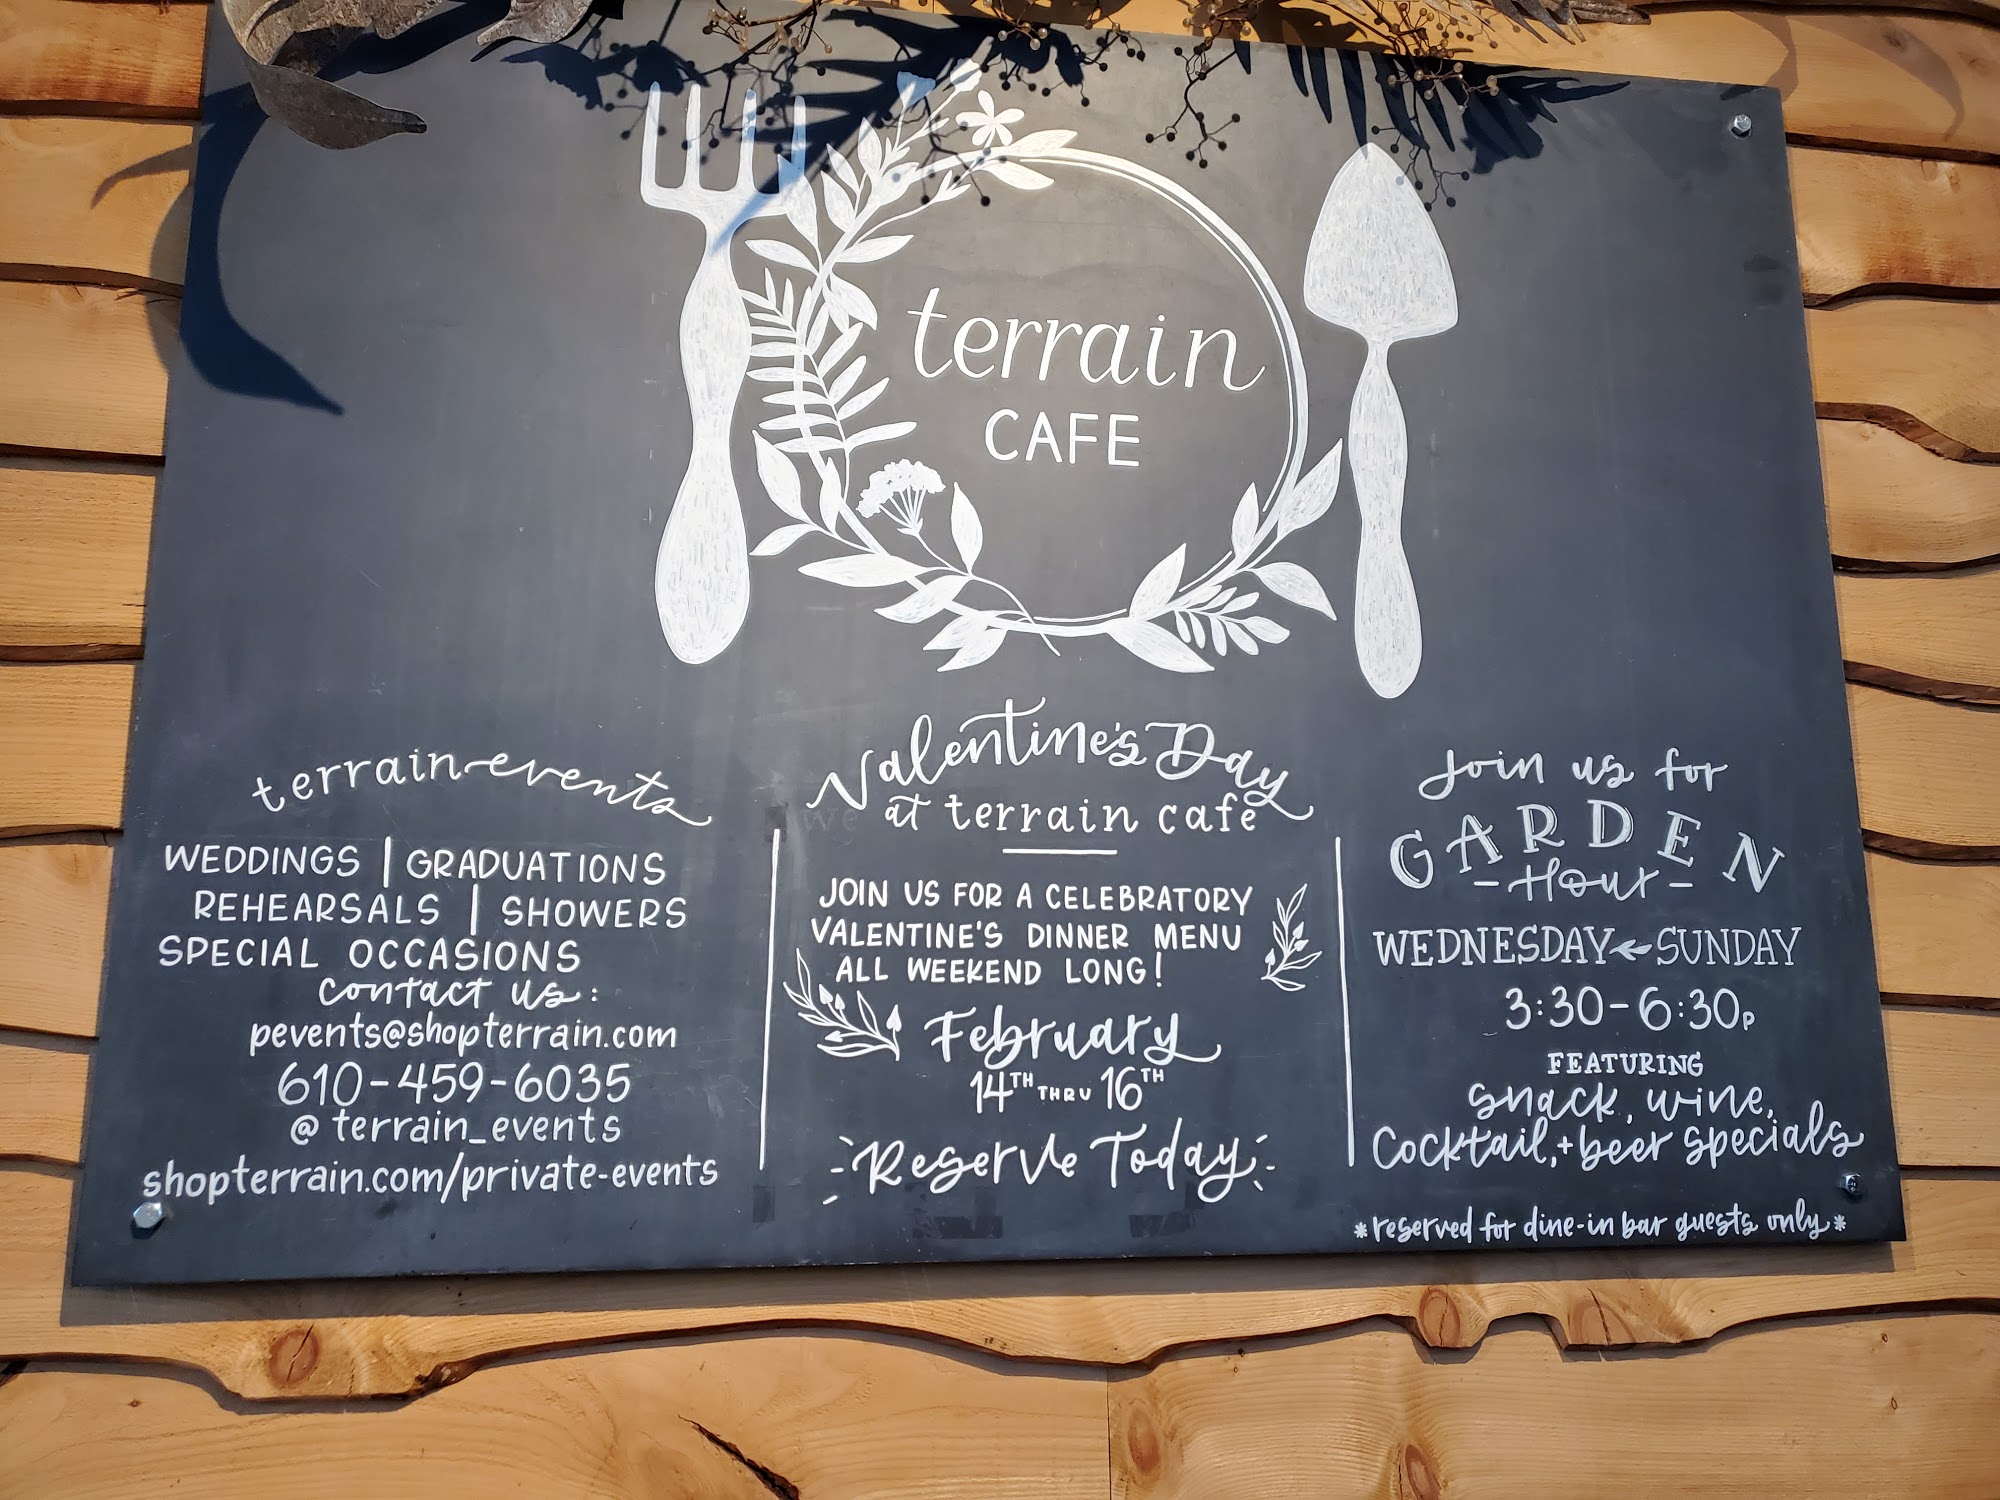 terrain
CAFE
terrain events
WEDDINGS | GRADUATIONS
REHEARSALS | SHOWERS
SPECIAL OCCASIONS
contact us:
pevents@shopterrain.com
610-459-6035
@terrain_events
shopterrain.com/private-events
Valentine's Day
at terrain cafe
JOIN US FOR A CELEBRATORY
VALENTINE'S DINNER MENU
ALL WEEKEND LONG!
February
14TH THRU 16TH
Reserve Today
Join us for
GARDEN
-Hour-
WEDNESDAY SUNDAY
3:30-6:30p
FEATURING
snack, wine,
Cocktail, + beer specials
*reserved for dine-in bar guests only*